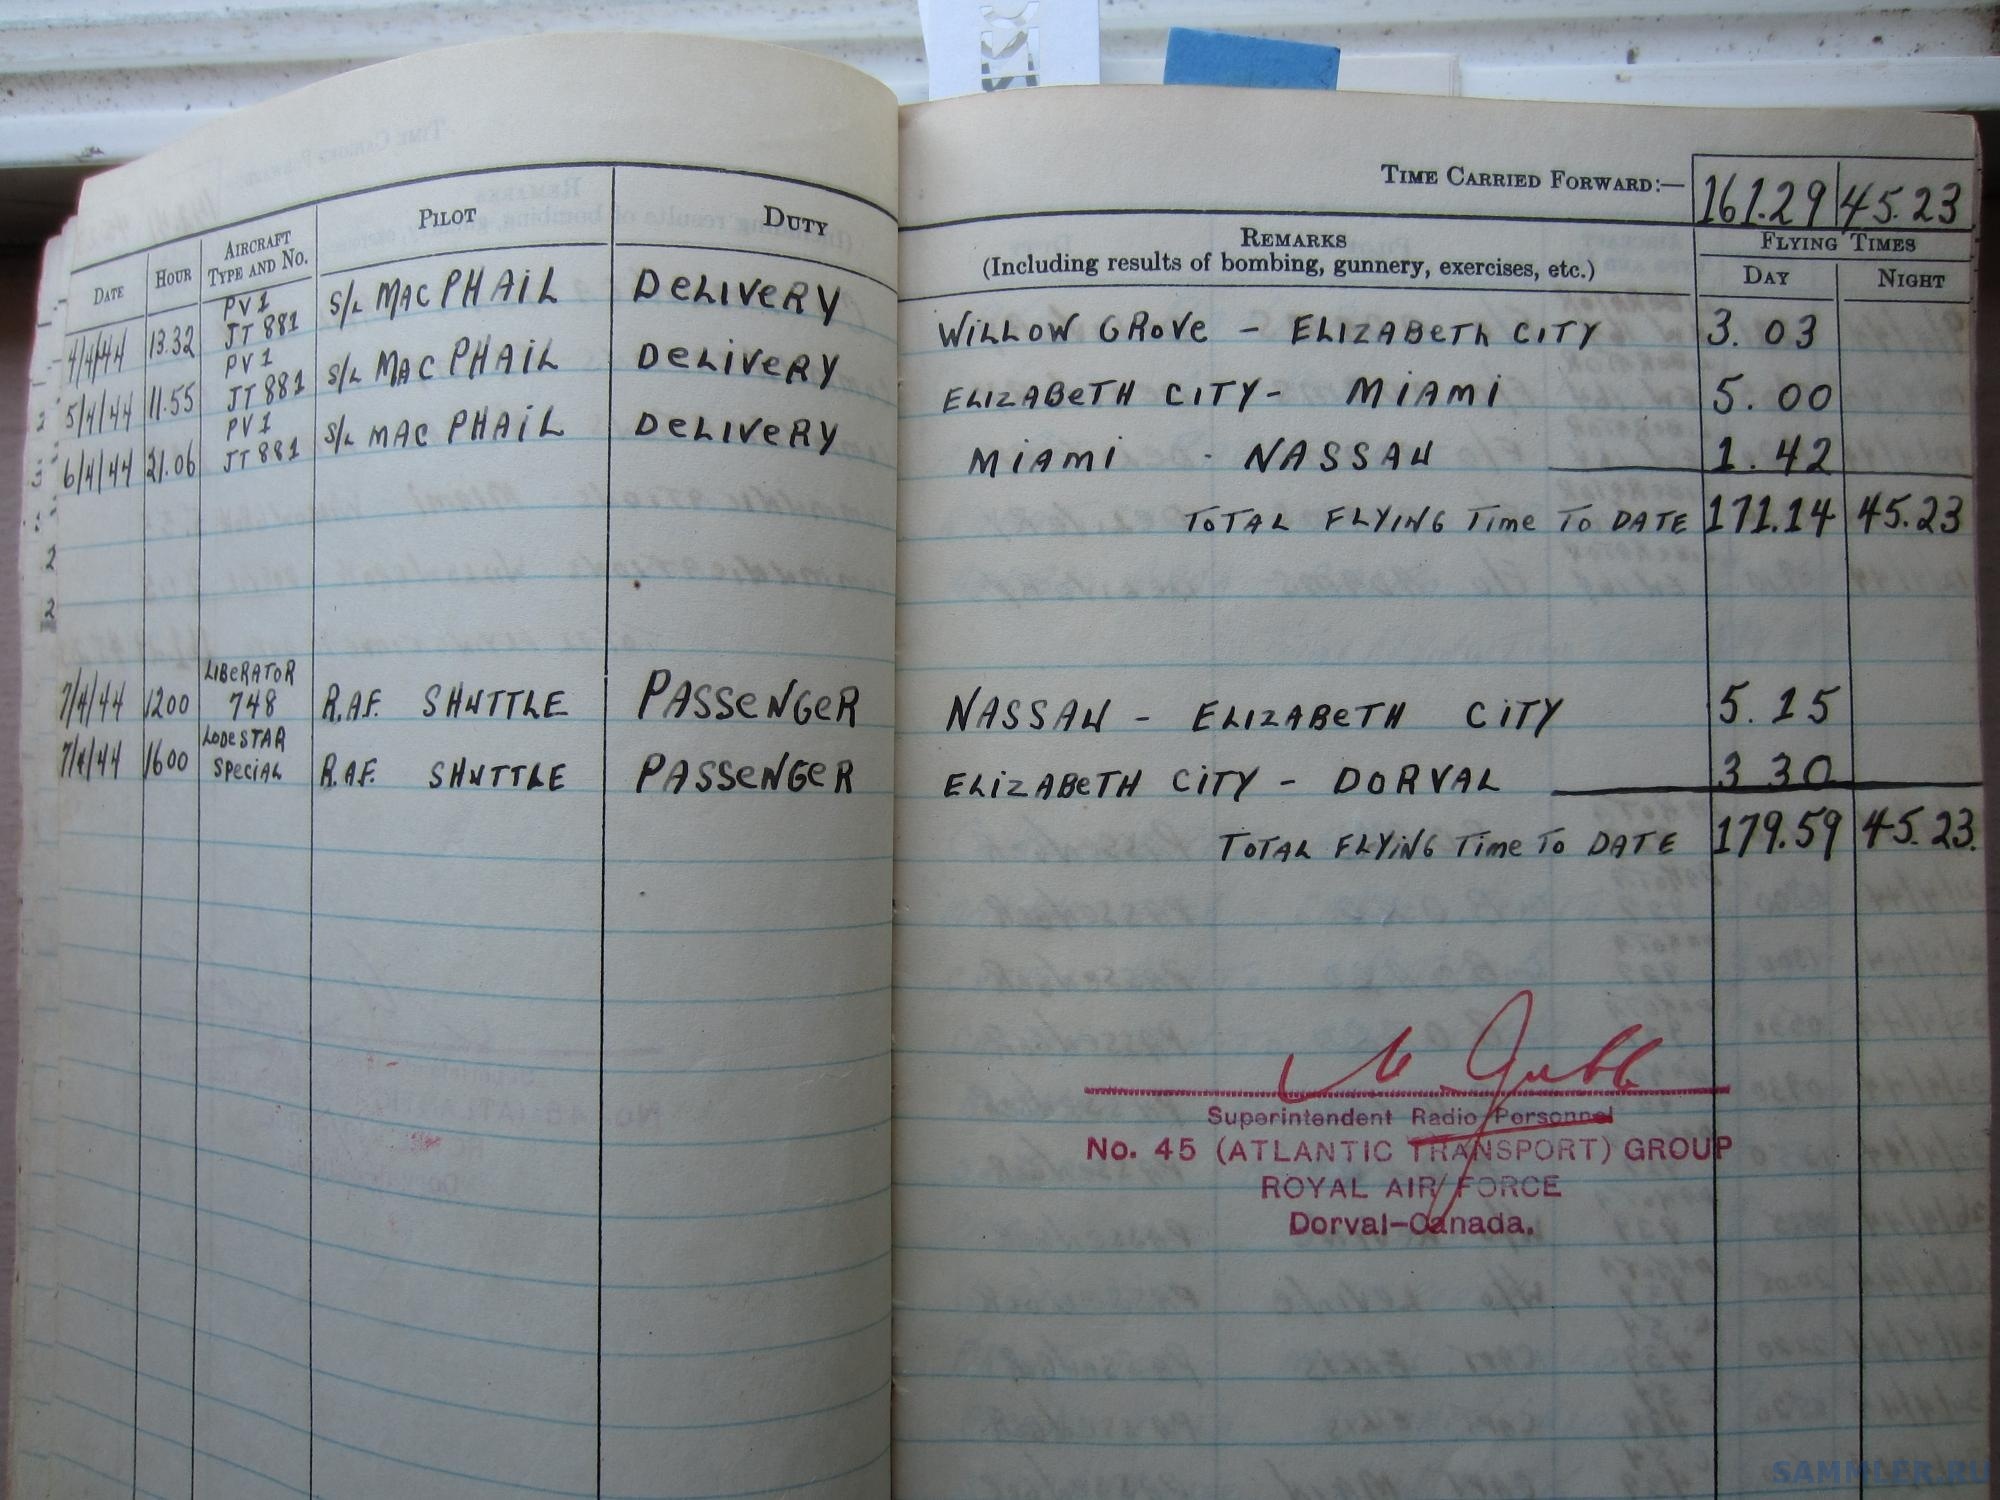 TIME CARRIED FORWARD:— 161.29 45.23
DATE HOUR AIRCRAFT TYPE AND NO. PILOT DUTY REMARKS (Including results of bombing, gunnery, exercises, etc.) FLYING TIMES DAY NIGHT
4/4/44 13.32 PV1 JT 881 S/L MACPHAIL DELIVERY WILLOW GROVE - ELIZABETH CITY 3.03
5/4/44 11.55 PV1 JT 881 S/L MACPHAIL DELIVERY ELIZABETH CITY- MIAMI 5.00
6/4/44 21.06 PV1 JT 881 S/L MACPHAIL DELIVERY MIAMI - NASSAU 1.42
TOTAL FLYING TIME TO DATE 171.14 45.23
7/4/44 1200 LIBERATOR 748 R.A.F. SHUTTLE PASSENGER NASSAU - ELIZABETH CITY 5.15
7/4/44 1600 LODESTAR SPECIAL R.A.F. SHUTTLE PASSENGER ELIZABETH CITY - DORVAL 3 30
TOTAL FLYING TIME TO DATE 179.59 45.23.
Superintendent Radio Personnel
No. 45 (ATLANTIC TRANSPORT) GROUP
ROYAL AIR FORCE
Dorval-Canada.
SAMMLER.RU